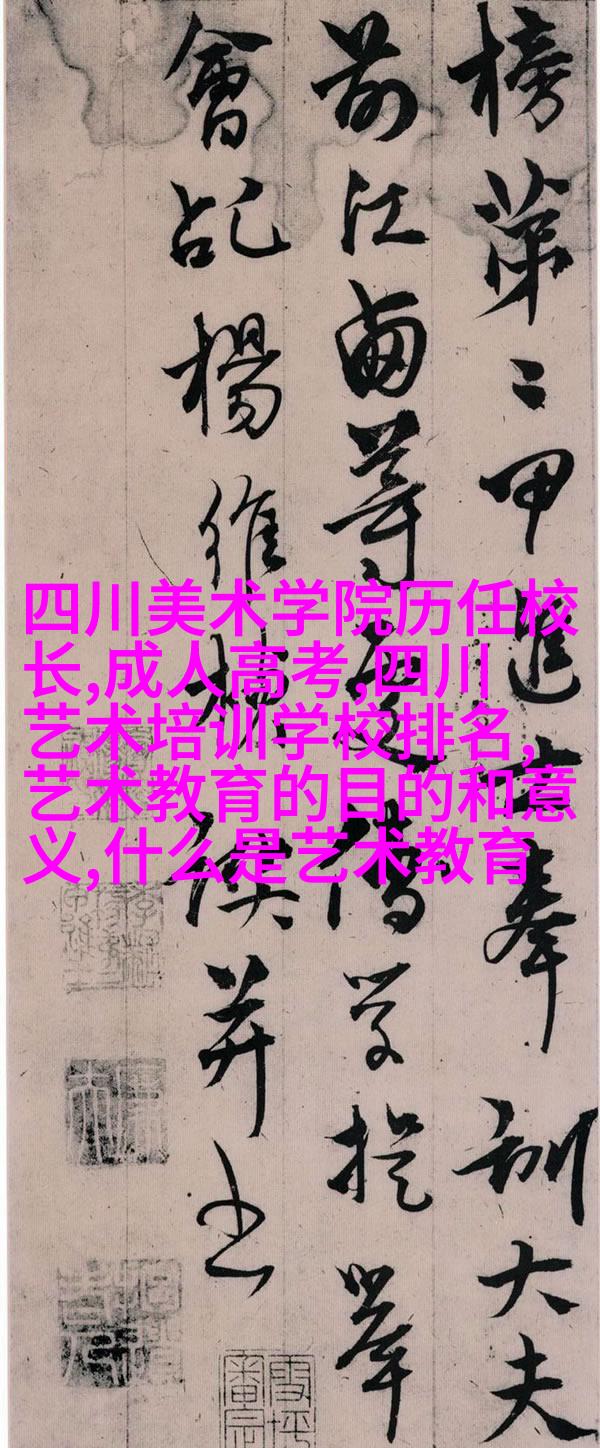 榜第二甲進士奉訓大夫
前江西等處儒學提舉
會稽楊維楨譔并書
四川美术学院历任校
长,成人高考,四川
艺术培训学校排名,
艺术教育的目的和意
义,什么是艺术教育